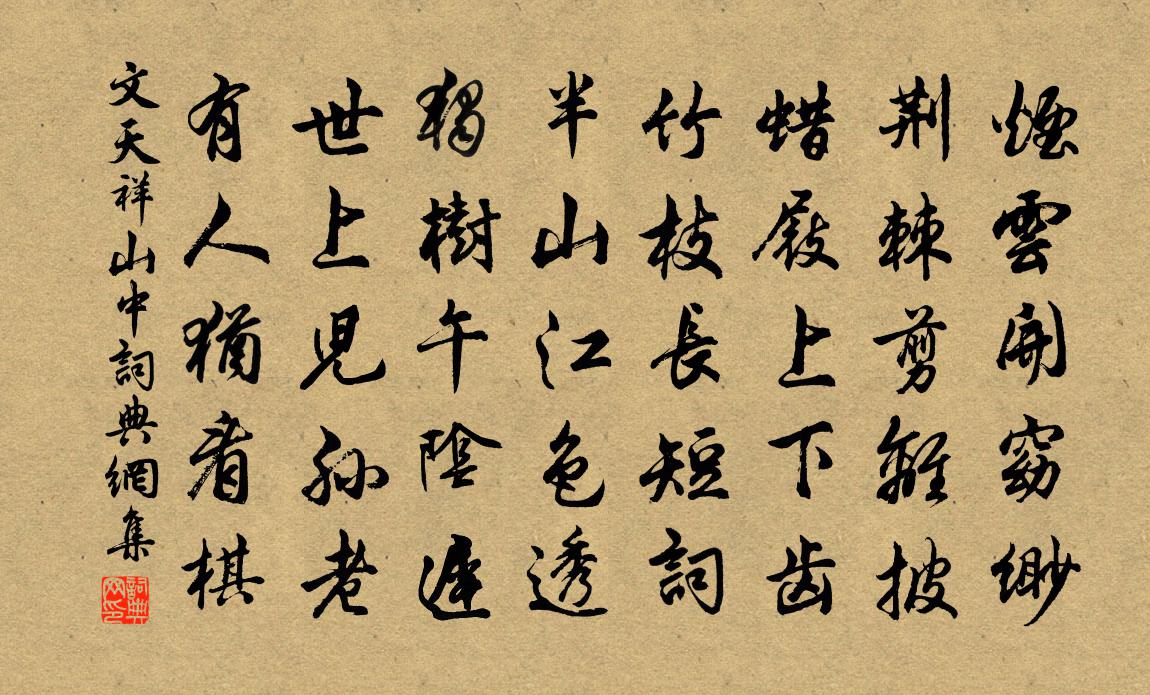 煙雲開窈緲
荆棘剪離披
蜡屐上下齿
竹枝長短詞
半山江色透
獨樹午陰遲
世上兒孫老
有人猶看棋
文天祥山中詞典網集
詞典网印